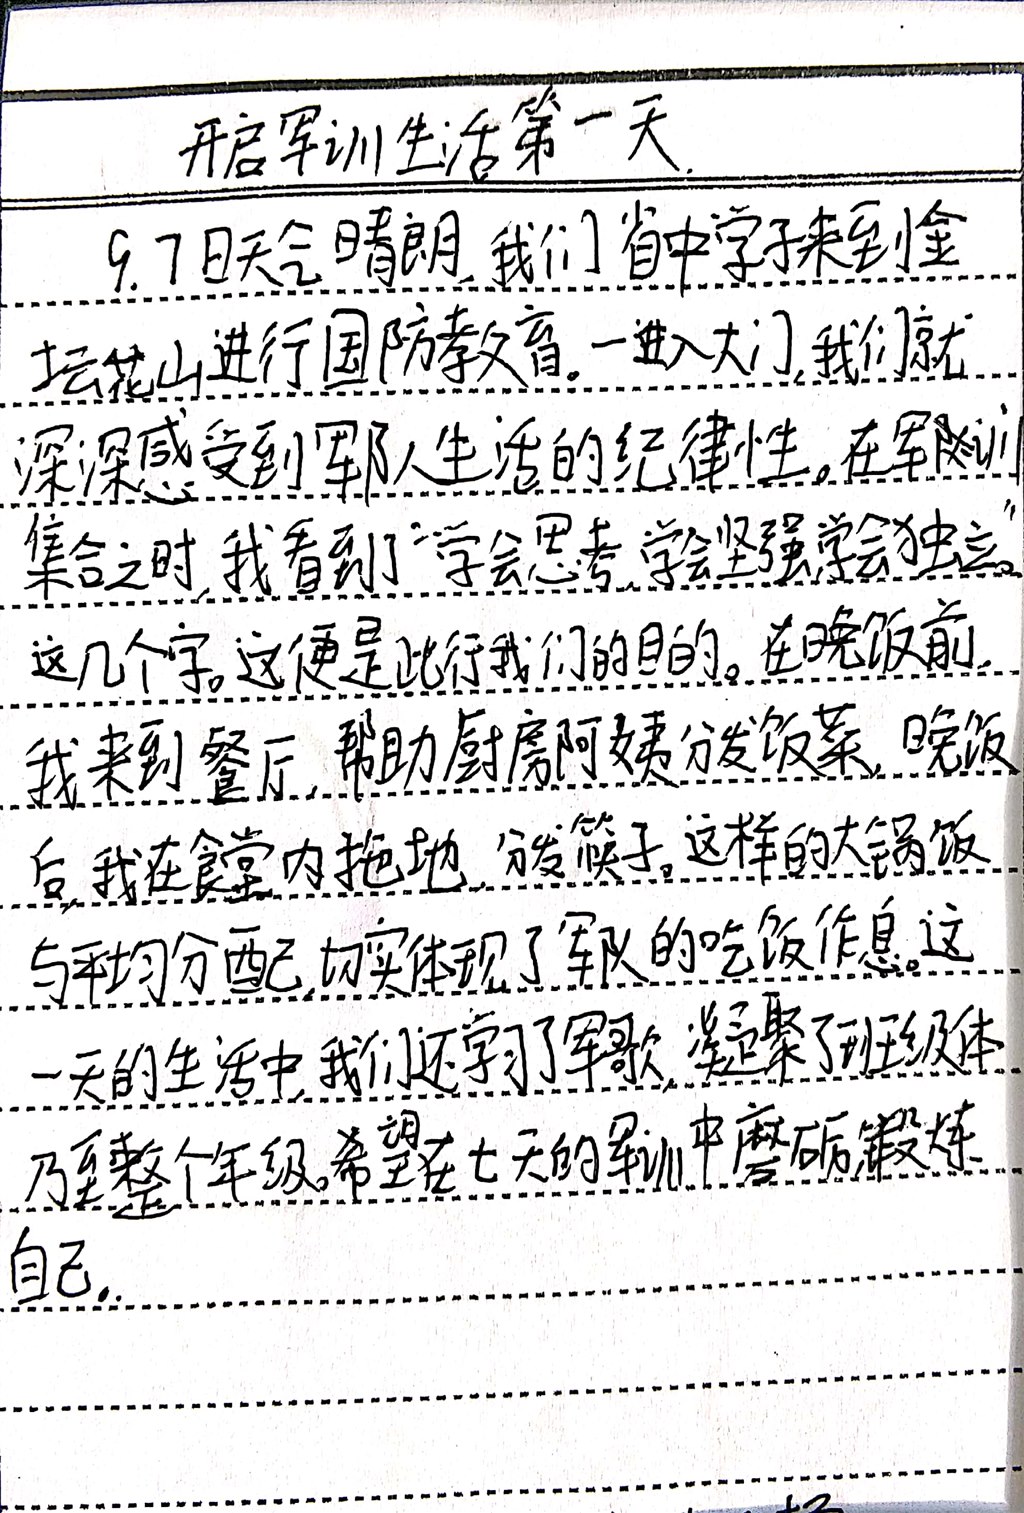 开启军训生活第一天.
9.7日天气晴朗,我们省中学子来到金
坛花山进行国防教育。一进入大门,我们就
深深感受到军队人生活的纪律性。在军训
集合之时,我看到了“学会思考,学会坚强,学会独立。”
这几个字。这便是此行我们的目的。在晚饭前,
我来到餐厅,帮助厨房阿姨分发饭菜,晚饭
后,我在食堂内拖地,分发筷子。这样的大锅饭
与平均分配,切实体现了军队的吃饭作息。这
一天的生活中,我们还学习了军歌,凝聚了班级体
乃至整个年级。希望在七天的军训中磨砺,锻炼
自己..